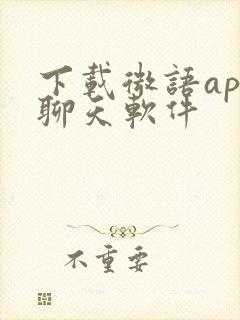 下載微語ap
聊天軟件
不重要